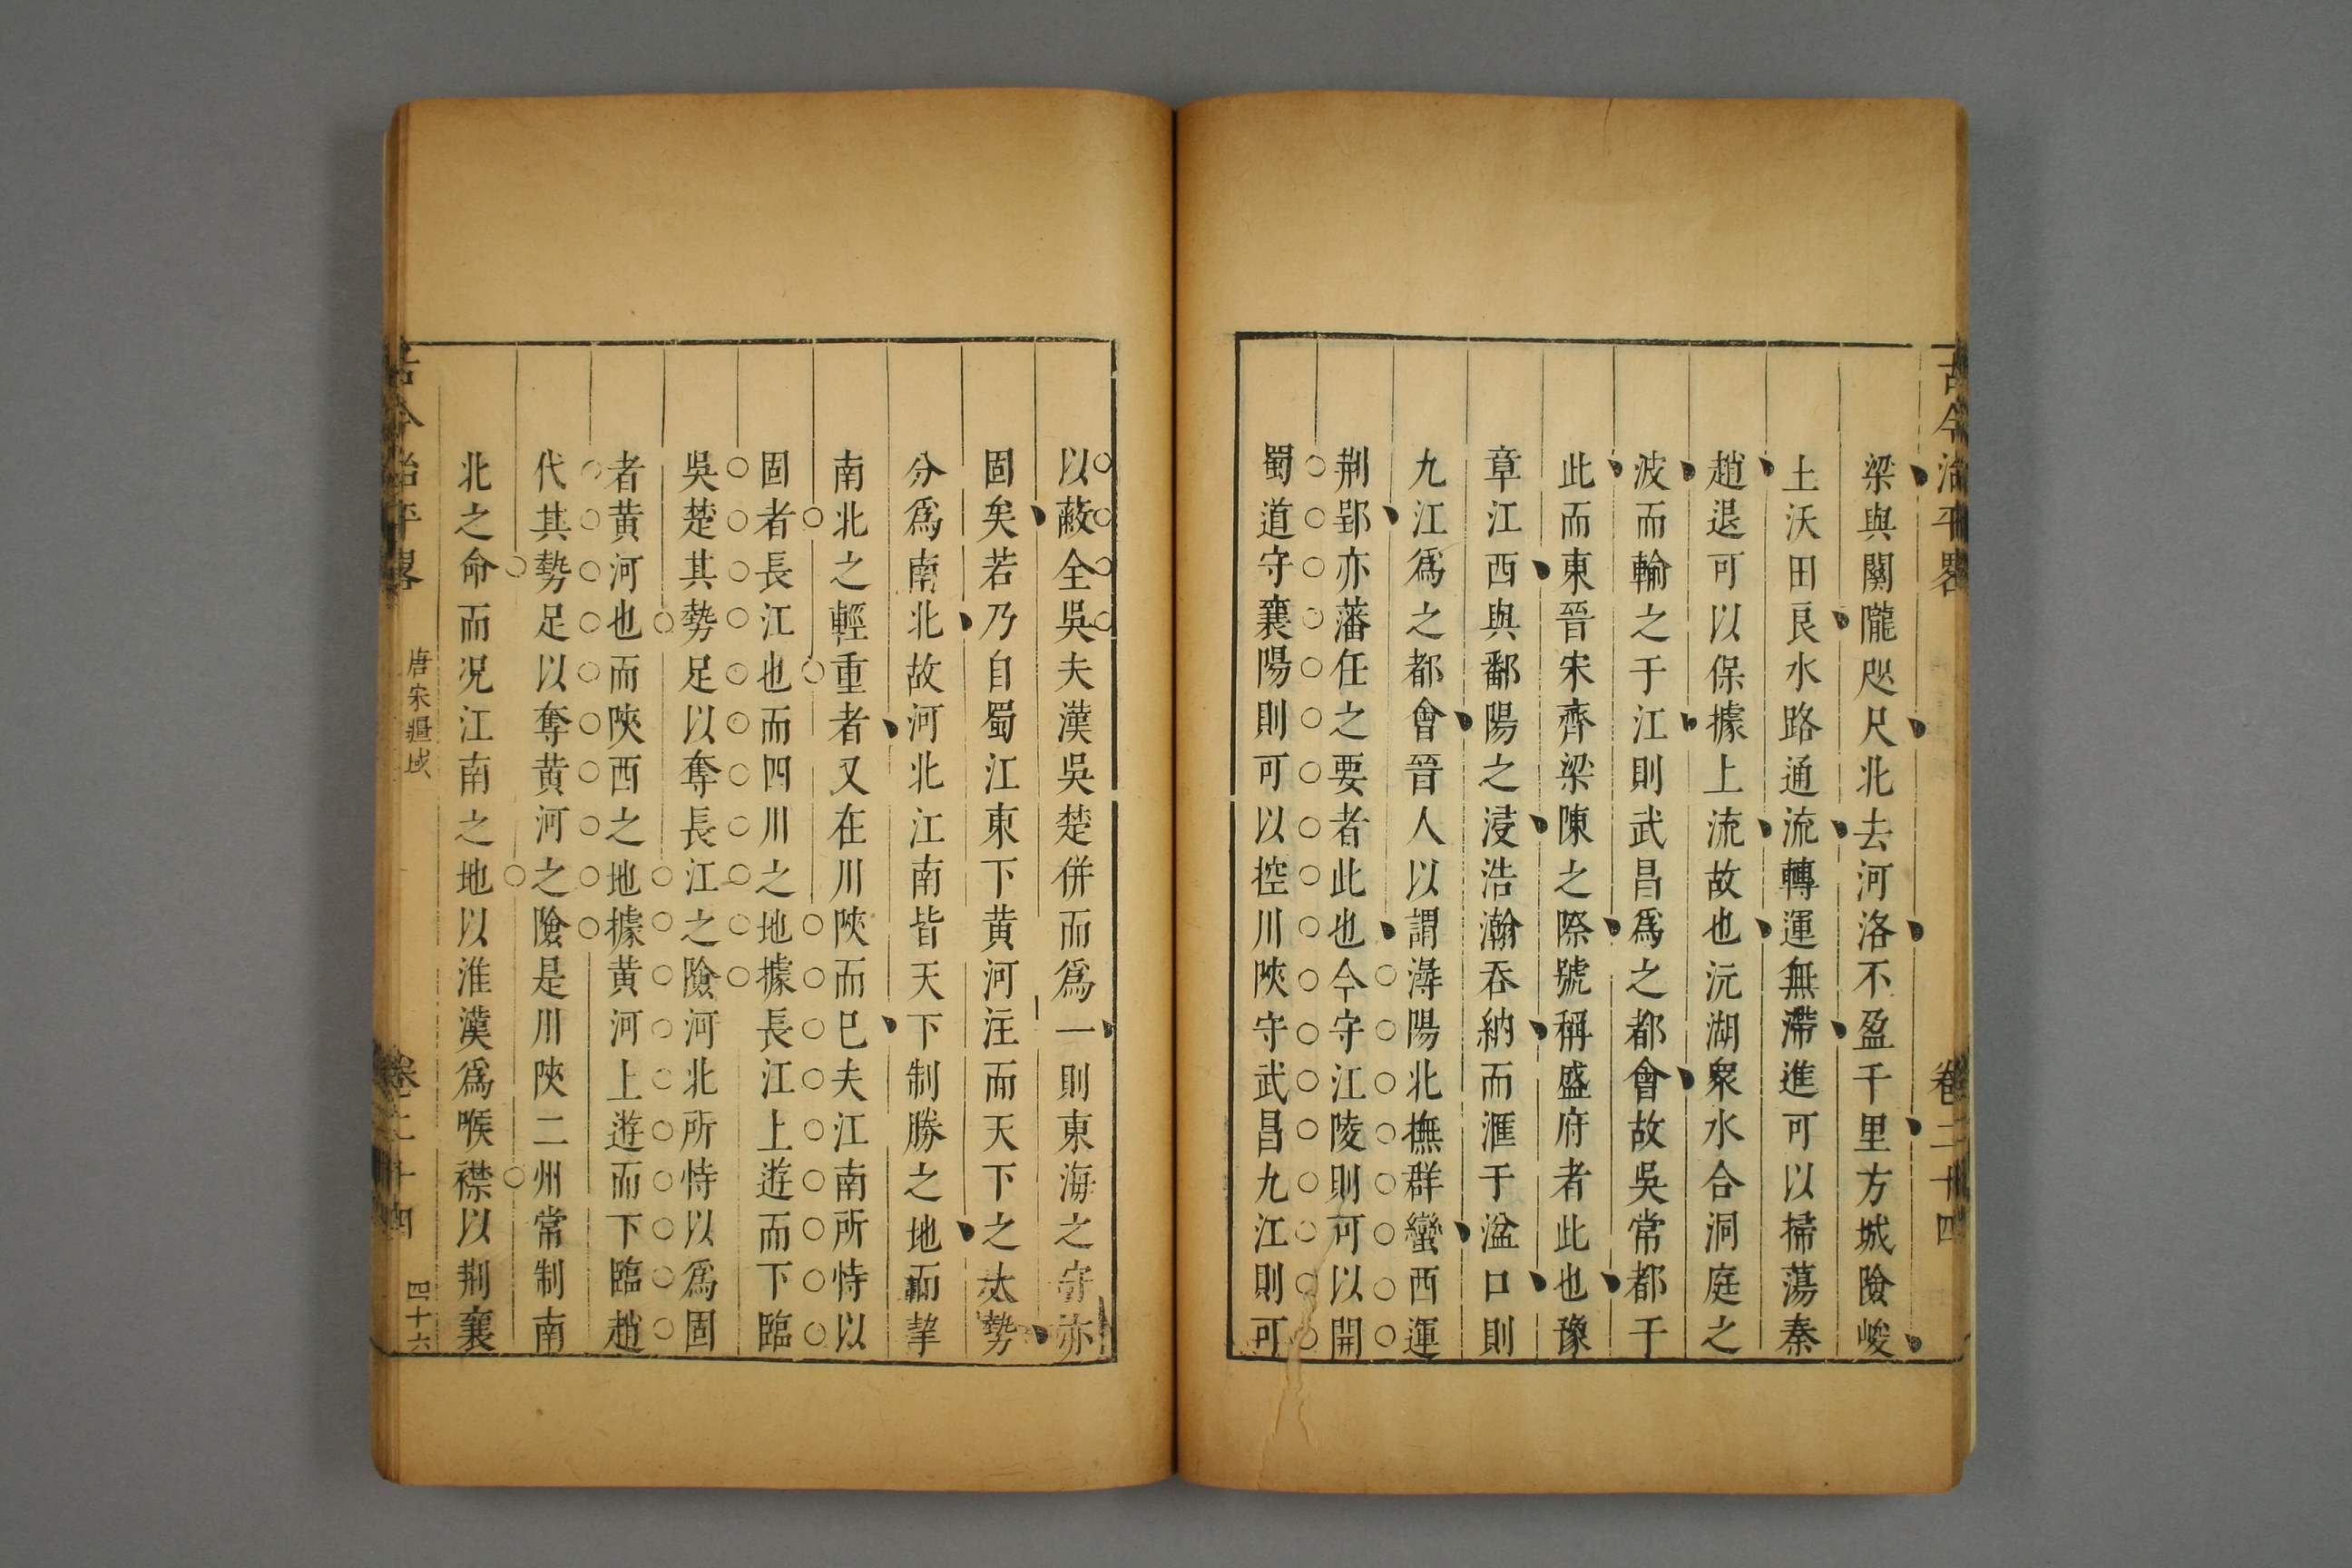 古今治平畧 卷二十四
梁與關隴咫尺北去河洛不盈千里方城險峻
土沃田良水路通流轉運無滯進可以掃蕩秦
趙退可以保據上流故也沅湖衆水合洞庭之
波而輸之于江則武昌爲之都會故吳常都于
此而東晉宋齊梁陳之際號稱盛府者此也豫
章江西與鄱陽之浸浩瀚吞納而滙于湓口則
九江爲之都會晉人以謂潯陽北撫群蠻西運
荆郢亦藩任之要者此也今守江陵則可以開
蜀道守襄陽則可以控川陝守武昌九江則可
以蔽全吳夫漢吳楚併而爲一則東海之守亦
固矣若乃自蜀江東下黄河注而天下之大勢
分爲南北故河北江南皆天下制勝之地而挈
南北之輕重者又在川陝而已夫江南所恃以
固者長江也而四川之地據長江上遊而下臨
吳楚其勢足以奪長江之險河北所恃以爲固
者黄河也而陝西之地據黄河上遊而下臨趙
代其勢足以奪黄河之險是川陝二州常制南
北之命而况江南之地以淮漢爲喉襟以荆襄
古今治平畧 唐宋疆域 卷二十四 四十六